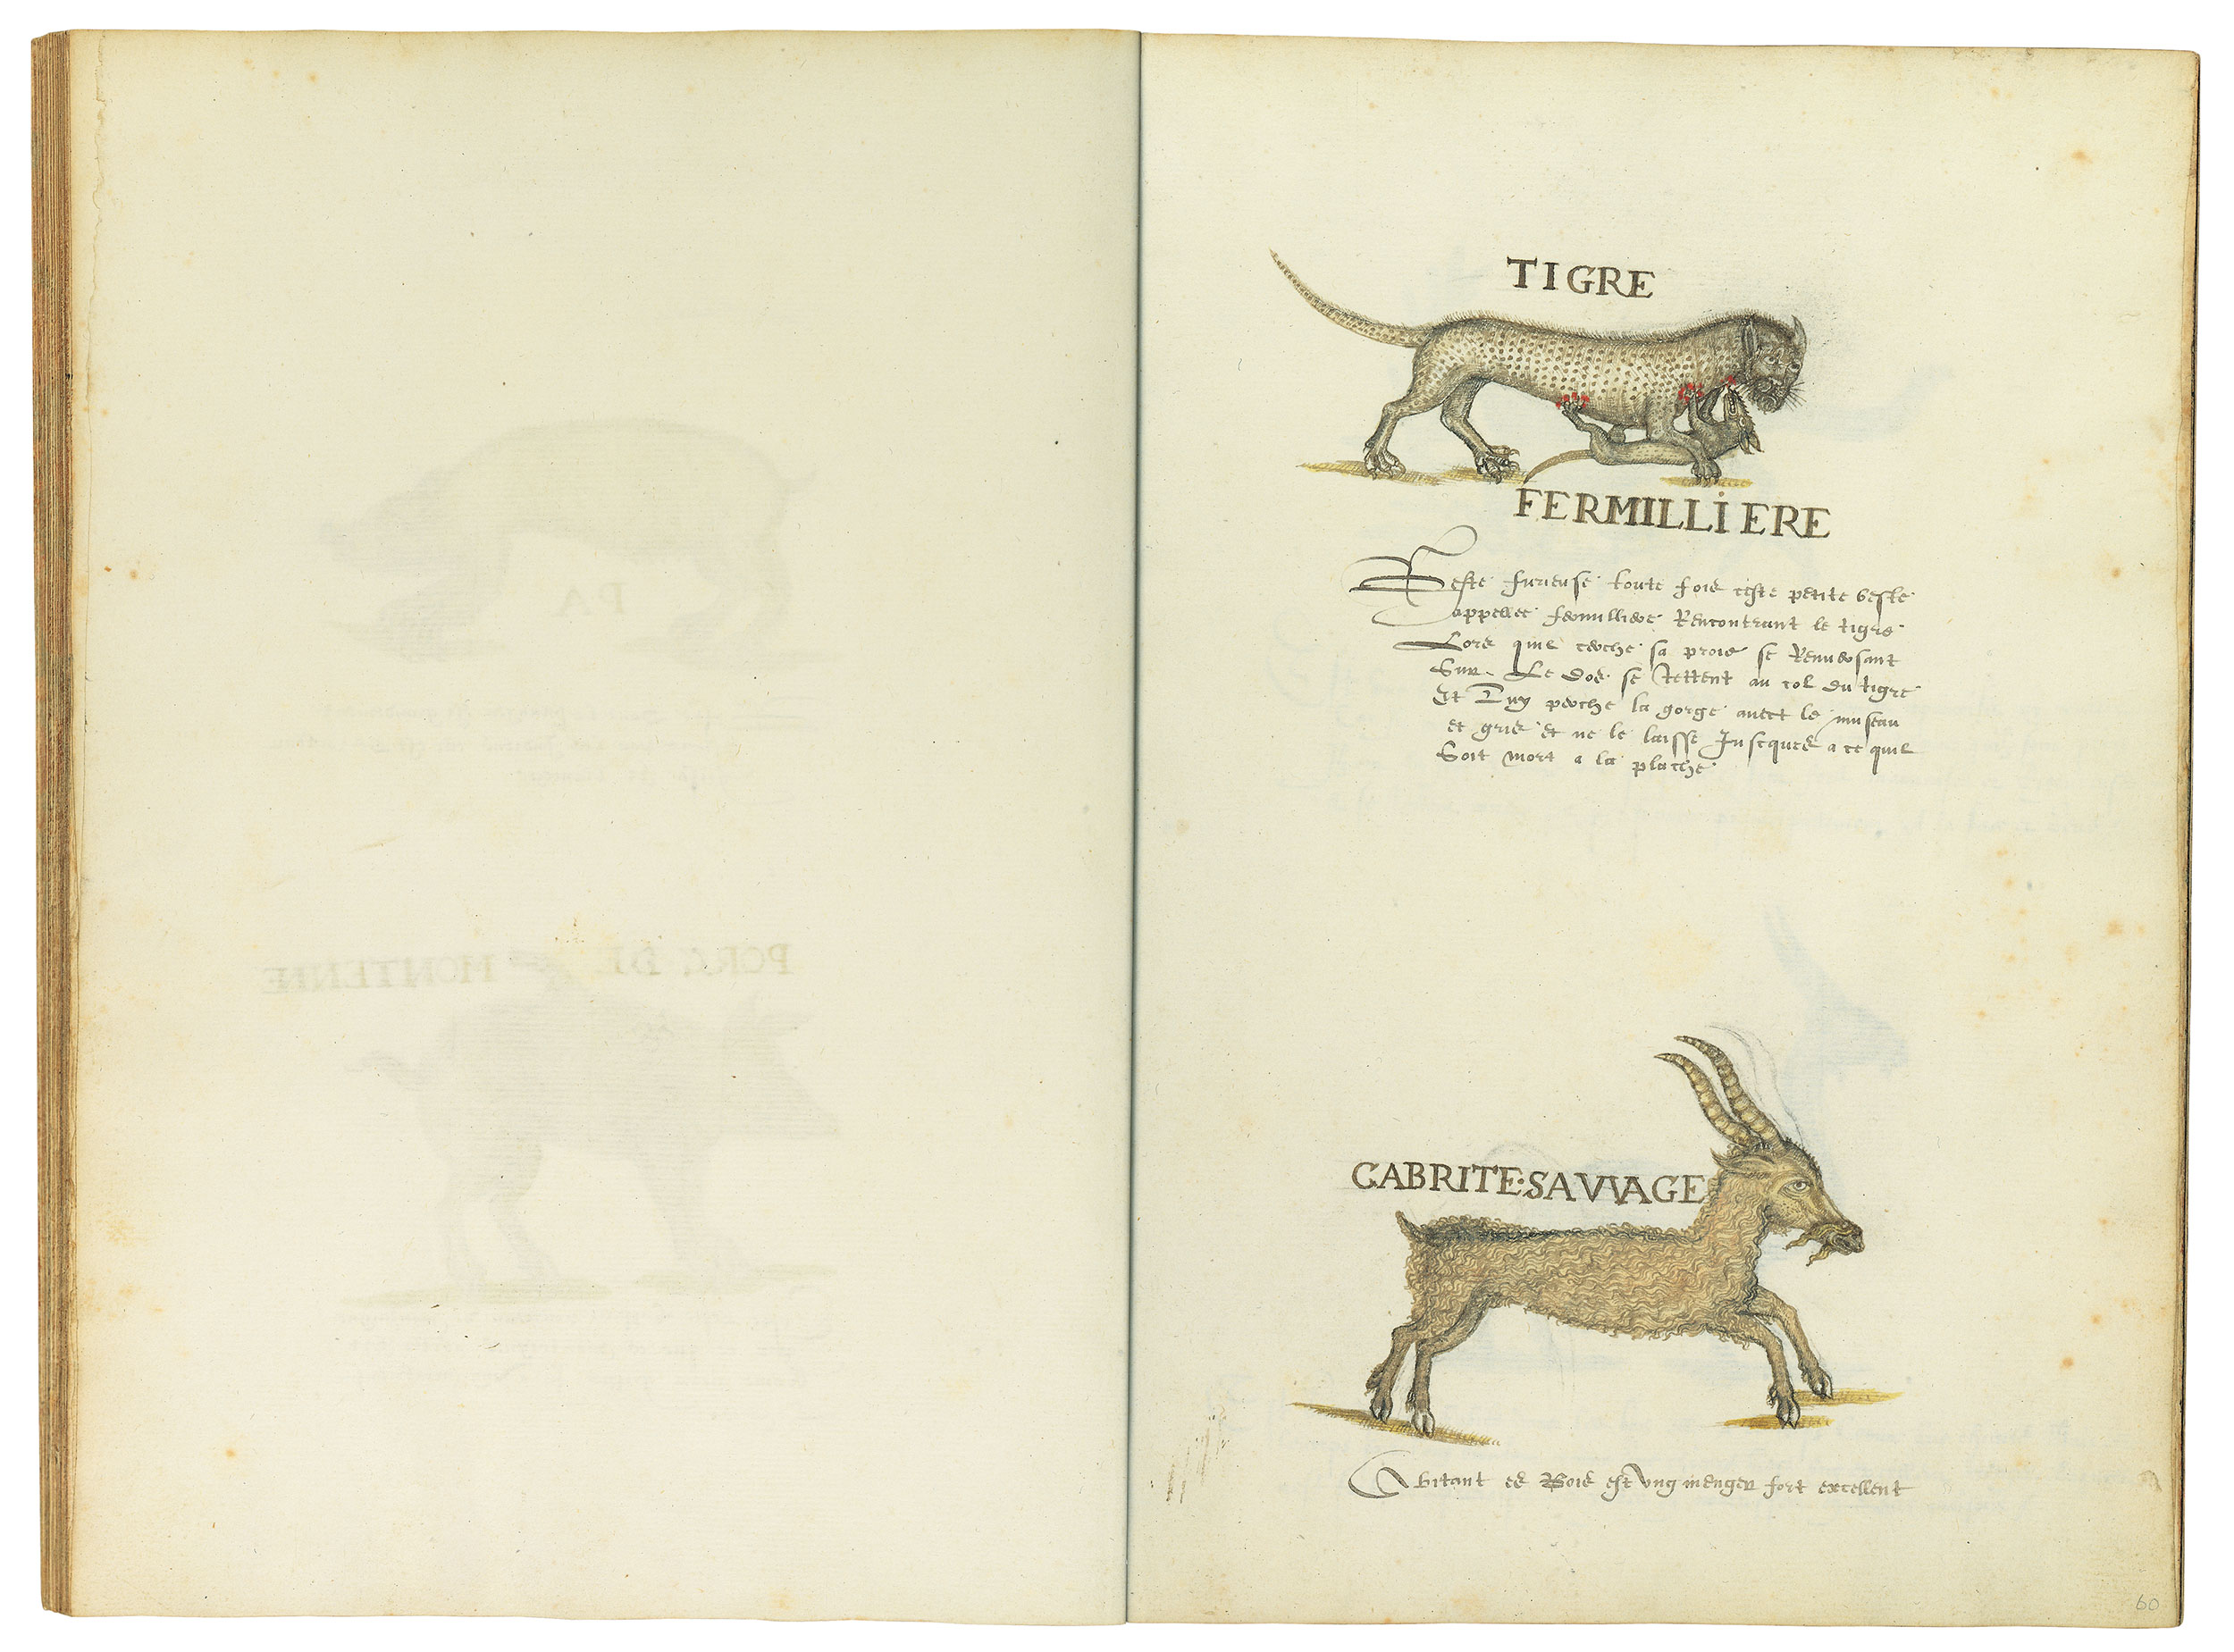 TIGRE
FERMILLIERE
Beste furieuse toute fois ceste petite beste
appellee fermilliere Rencontrant le tigre
Lors quil cerche sa proie se Renversant
Sur Le dos se Jettent au col du tigre
Et Luy perche la gorge avect le museau
et gris et ne le laisse Jusques a ce quil
Soit mort a la plache
CABRITE:SAVVAGE
Abitant es Bois est ung menger fort excellent
60
PA
PORC DE MONTENNE